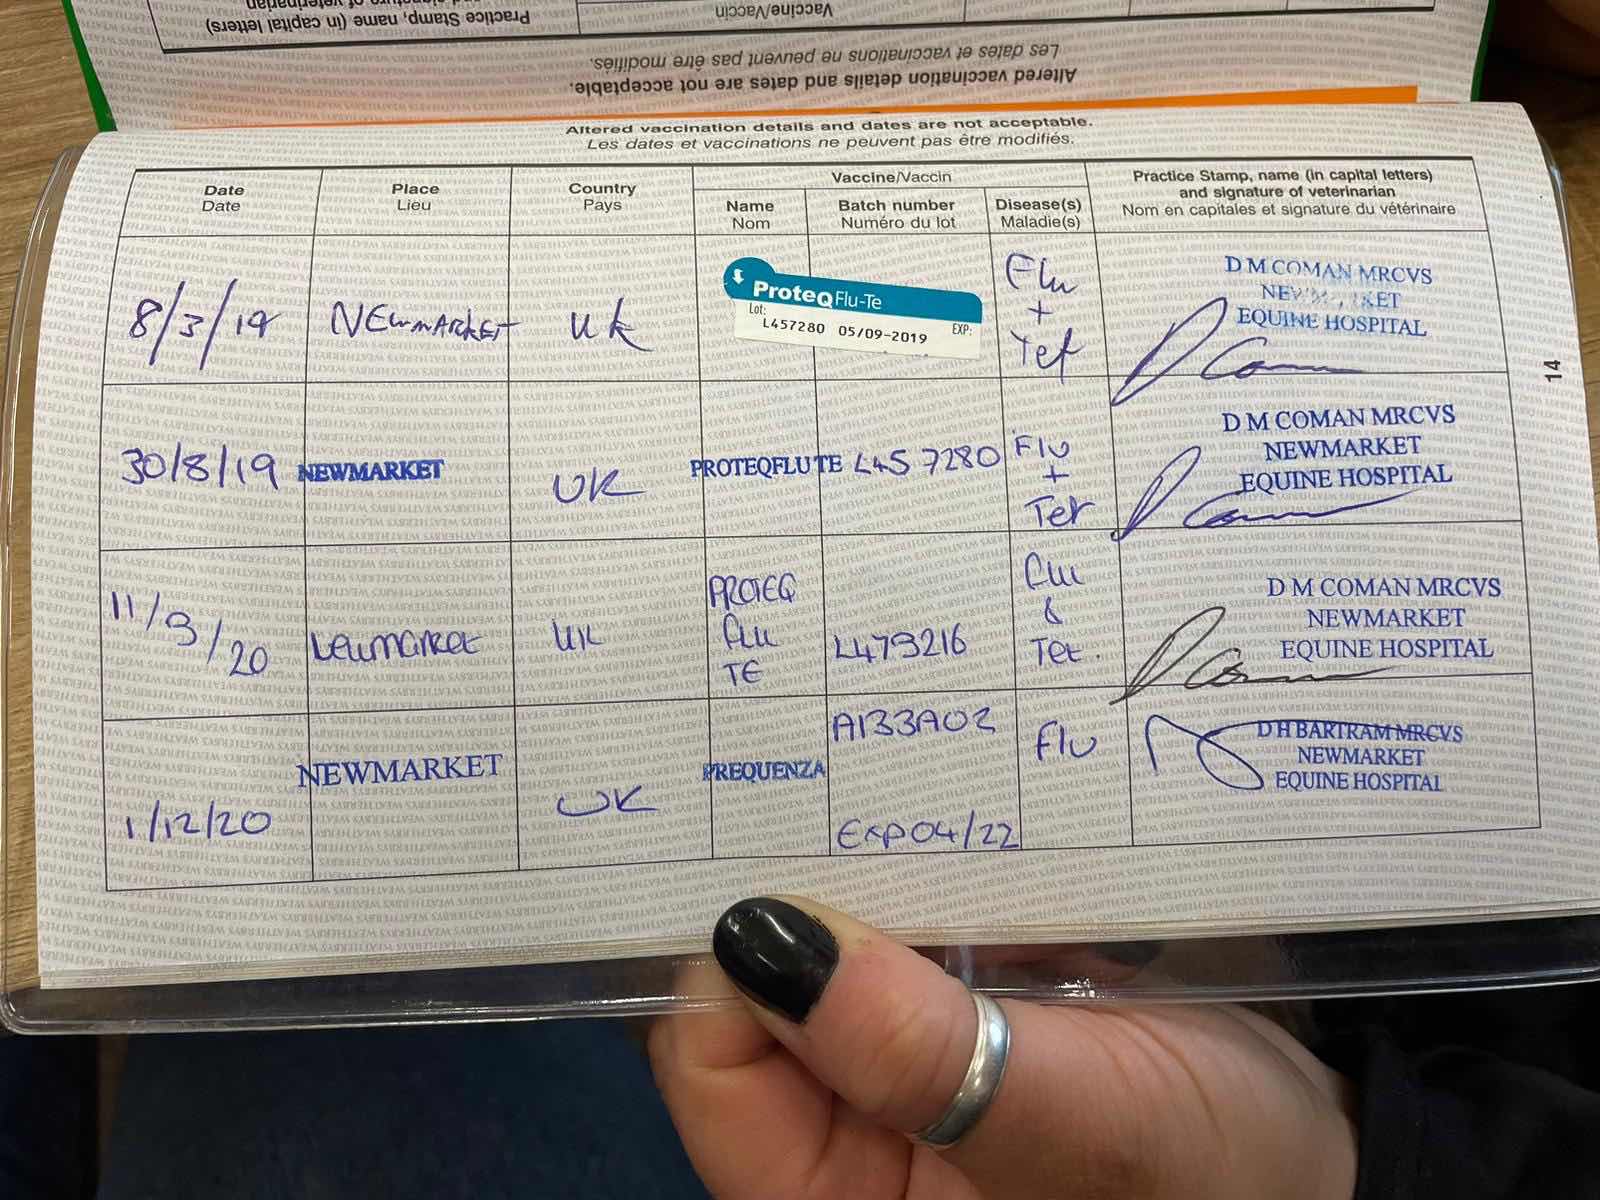 and signature of veterinarian
Practice Stamp, name (in capital letters)
Vaccine/Vaccin
Les dates et vaccinations ne peuvent pas être modifiés.
Altered vaccination details and dates are not acceptable.
Altered vaccination details and dates are not acceptable.
Les dates et vaccinations ne peuvent pas être modifiés.
Date
Date
Place
Lieu
Country
Pays
Vaccine/Vaccin
Name
Nom
Batch number
Numéro du lot
Disease(s)
Maladie(s)
Practice Stamp, name (in capital letters)
and signature of veterinarian
Nom en capitales et signature du vétérinaire
8/3/19
NEWMARKET
UK
ProteqFlu-Te
Lot: EXP:
L457280 05/09-2019
Flu
+
Tet
D M COMAN MRCVS
NEWMARKET
EQUINE HOSPITAL
30/8/19
NEWMARKET
UK
PROTEQFLUTE
L457280
Flu
+
Tet
D M COMAN MRCVS
NEWMARKET
EQUINE HOSPITAL
11/3/20
Newmarket
UK
PROTEQ
FLU
TE
L479216
Flu
&
Tet.
D M COMAN MRCVS
NEWMARKET
EQUINE HOSPITAL
1/12/20
NEWMARKET
UK
PREQUENZA
A133A02
Exp 04/22
Flu
D H BARTRAM MRCVS
NEWMARKET
EQUINE HOSPITAL
14
WEATHERBYS